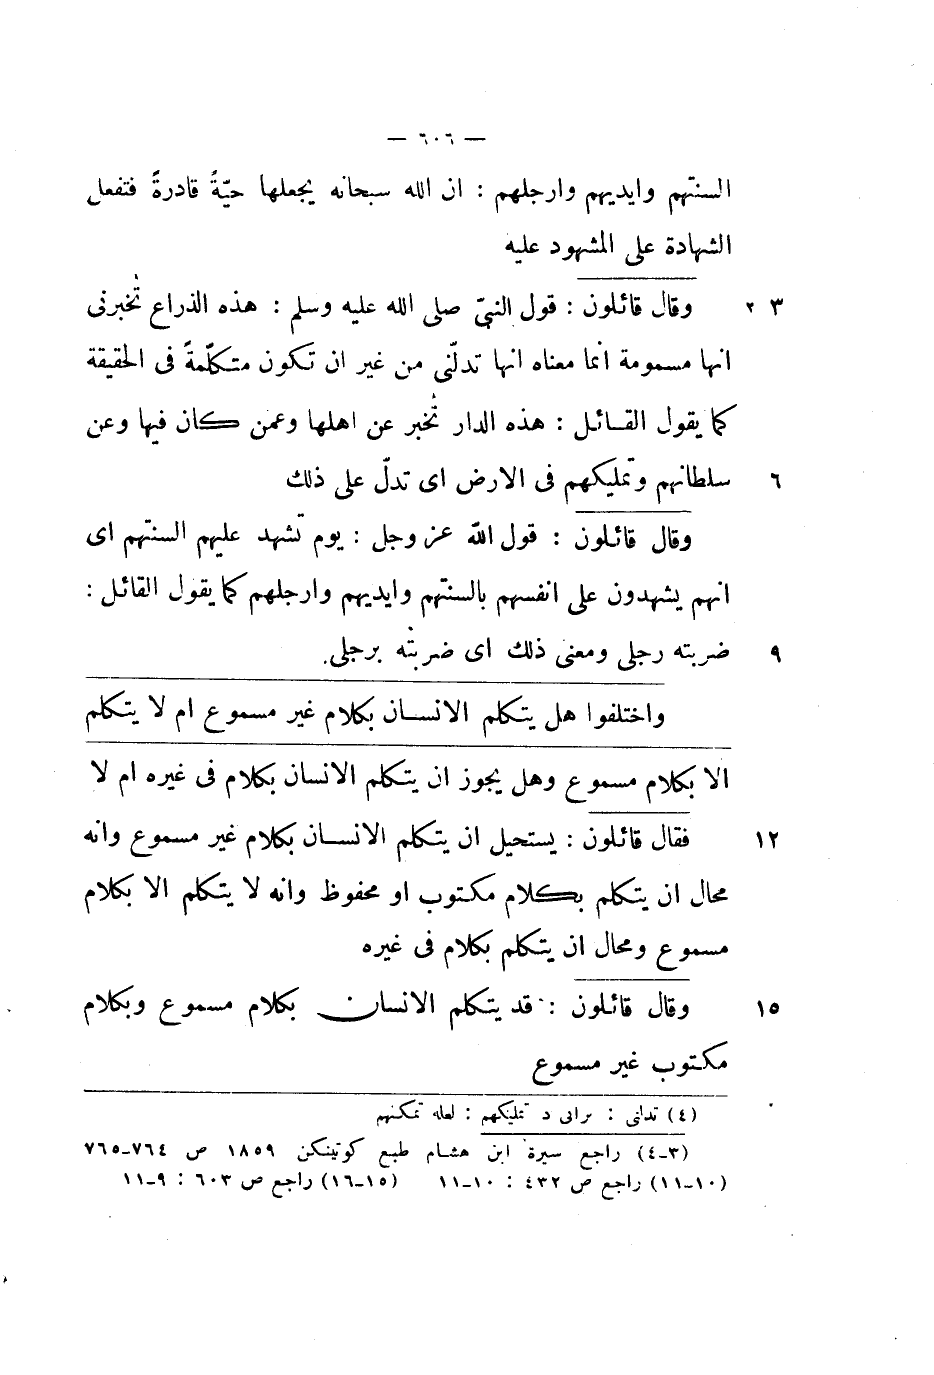 — ٦٠٦ —
السنتهم وايديهم وارجلهم : ان الله سبحانه يجعلها حيّةً قادرةً فتفعل
الشهادة على المشهود عليه
٣ ٢ وقال قائلون : قول النبيّ صلى الله عليه وسلم : هذه الذراع تُخبرنى
انها مسمومة انما معناه انها تدلّنى من غير ان تكون متكلّمةً فى الحقيقة
كما يقول القائل : هذه الدار تُخبر عن اهلها وعمن كان فيها وعن
٦ سلطانهم وتمليكهم فى الارض اى تدلّ على ذلك
وقال قائلون : قول الله عز وجل : يوم تشهد عليهم السنتهم اى
انهم يشهدون على انفسهم بالسنتهم وايديهم وارجلهم كما يقول القائل :
٩ ضربته رجلى ومعنى ذلك اى ضربتُه برجلى.
واختلفوا هل يتكلم الانسان بكلام غير مسموع ام لا يتكلم
الا بكلام مسموع وهل يجوز ان يتكلم الانسان بكلام فى غيره ام لا
١٢ فقال قائلون : يستحيل ان يتكلم الانسان بكلام غير مسموع وانه
محال ان يتكلم بكلام مكتوب او محفوظ وانه لا يتكلم الا بكلام
مسموع ومحال ان يتكلم بكلام فى غيره
١٥ وقال قائلون : قد يتكلم الانسان بكلام مسموع وبكلام
مكتوب غير مسموع
(٤) تدلنى : برانى د تمليكهم : لعله تمكنهم
(٣-٤) راجع سيرة ابن هشام طبع كوتينكن ١٨٥٩ ص ٧٦٤-٧٦٥
(١٠-١١) راجع ص ٤٣٢ : ١٠-١١ (١٥-١٦) راجع ص ٦٠٣ : ٩-١١